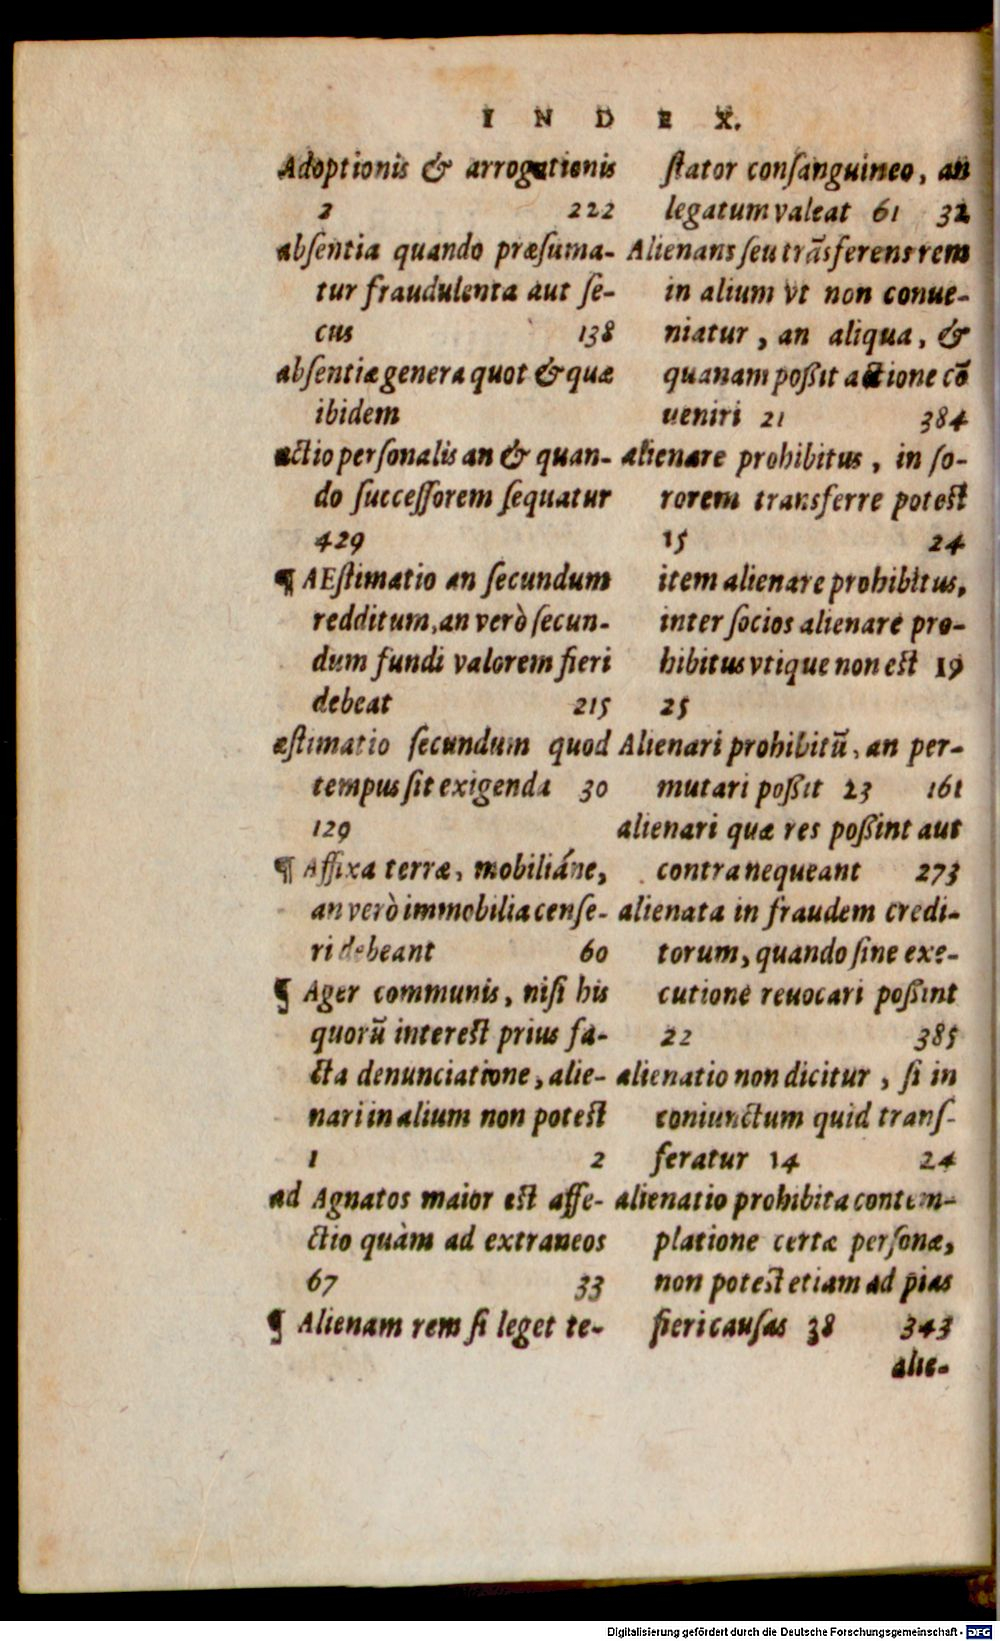 INDEX.
Adoptionis & arrogationis
2 222
absentia quando præsuma-
tur fraudulenta aut se-
cus 138
absentiæ genera quot & quæ
ibidem
actio personalis an & quan-
do successorem sequatur
429
¶ AEstimatio an secundum
redditum, an verò secun-
dum fundi valorem fieri
debeat 215
æstimatio secundum quod
tempus sit exigenda 30
129
¶ Affixa terræ, mobiliáne,
an verò immobilia cense-
ri debeant 60
¶ Ager communis, nisi his
quorũ interest prius fa-
cta denunciatione, alie-
nari in alium non potest
1 2
ad Agnatos maior est affe-
ctio quàm ad extraneos
67 33
¶ Alienam rem si leget te-
stator consanguineo, an
legatum valeat 61 32
Alienans seu trãsferens rem
in alium vt non conue-
niatur, an aliqua, &
quanam possit actione cõ
ueniri 21 384
alienare prohibitus, in so-
rorem transferre potest
15 24
item alienare prohibitus,
inter socios alienare pro-
hibitus vtique non est 19
25
Alienari prohibitũ, an per-
mutari possit 23 161
alienari quæ res possint aut
contra nequeant 273
alienata in fraudem credi-
torum, quando sine exe-
cutione reuocari possint
22 385
alienatio non dicitur, si in
coniunctum quid trans-
feratur 14 24
alienatio prohibita contem-
platione certæ personæ,
non potest etiam ad pias
fieri causas 38 343
alie-
Digitalisierung gefördert durch die Deutsche Forschungsgemeinschaft - DFG